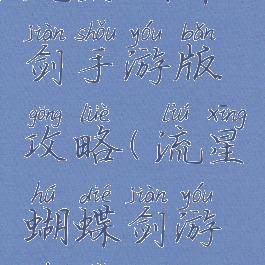 jiàn shǒu yóu bǎn
剑手游版
gōng lüè liú xīng
攻略(流星
hú dié jiàn yóu
蝴蝶剑游